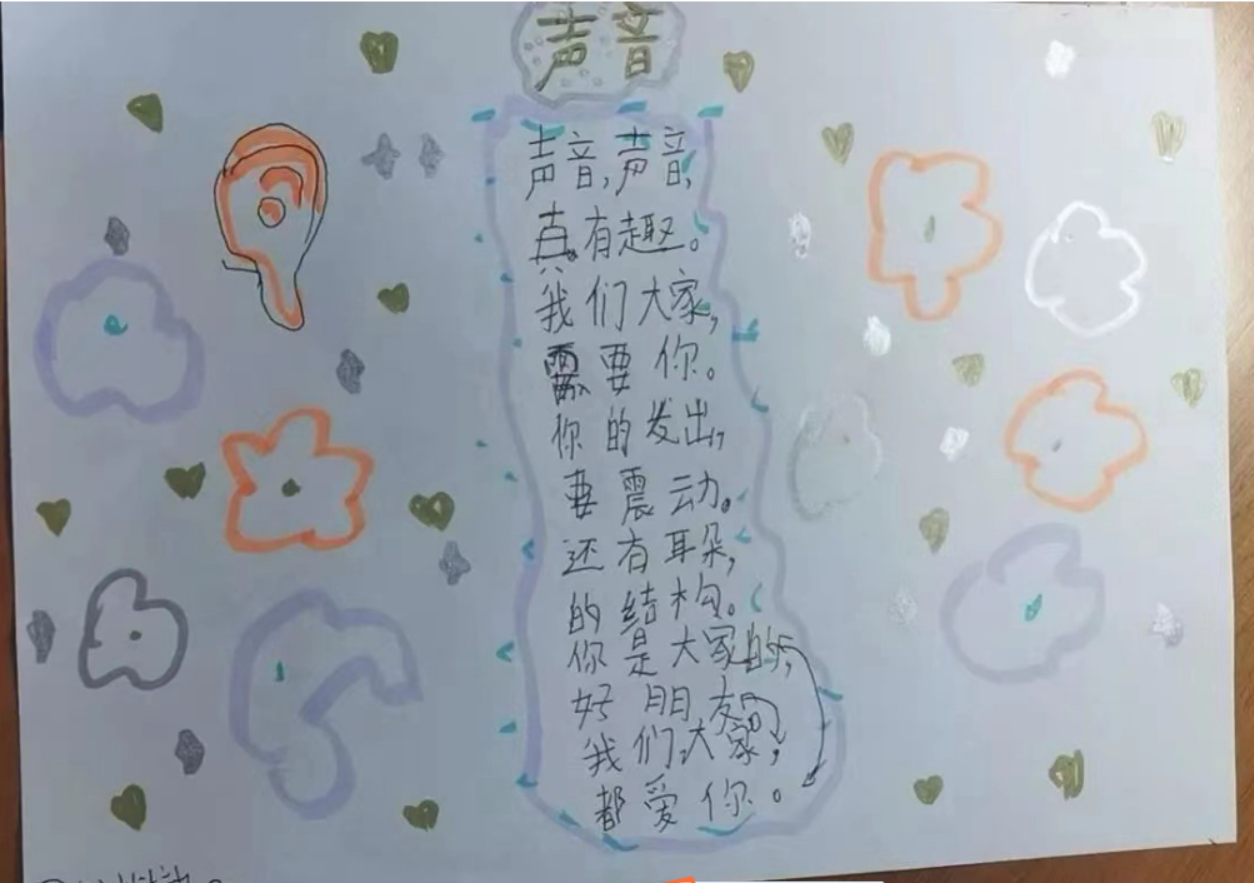 声音
声音,声音,
真有趣。
我们大家,
需要你。
你的发出,
要震动。
还有耳朵,
的结构。
你是大家的,
好朋友,
我们大家,
都爱你。